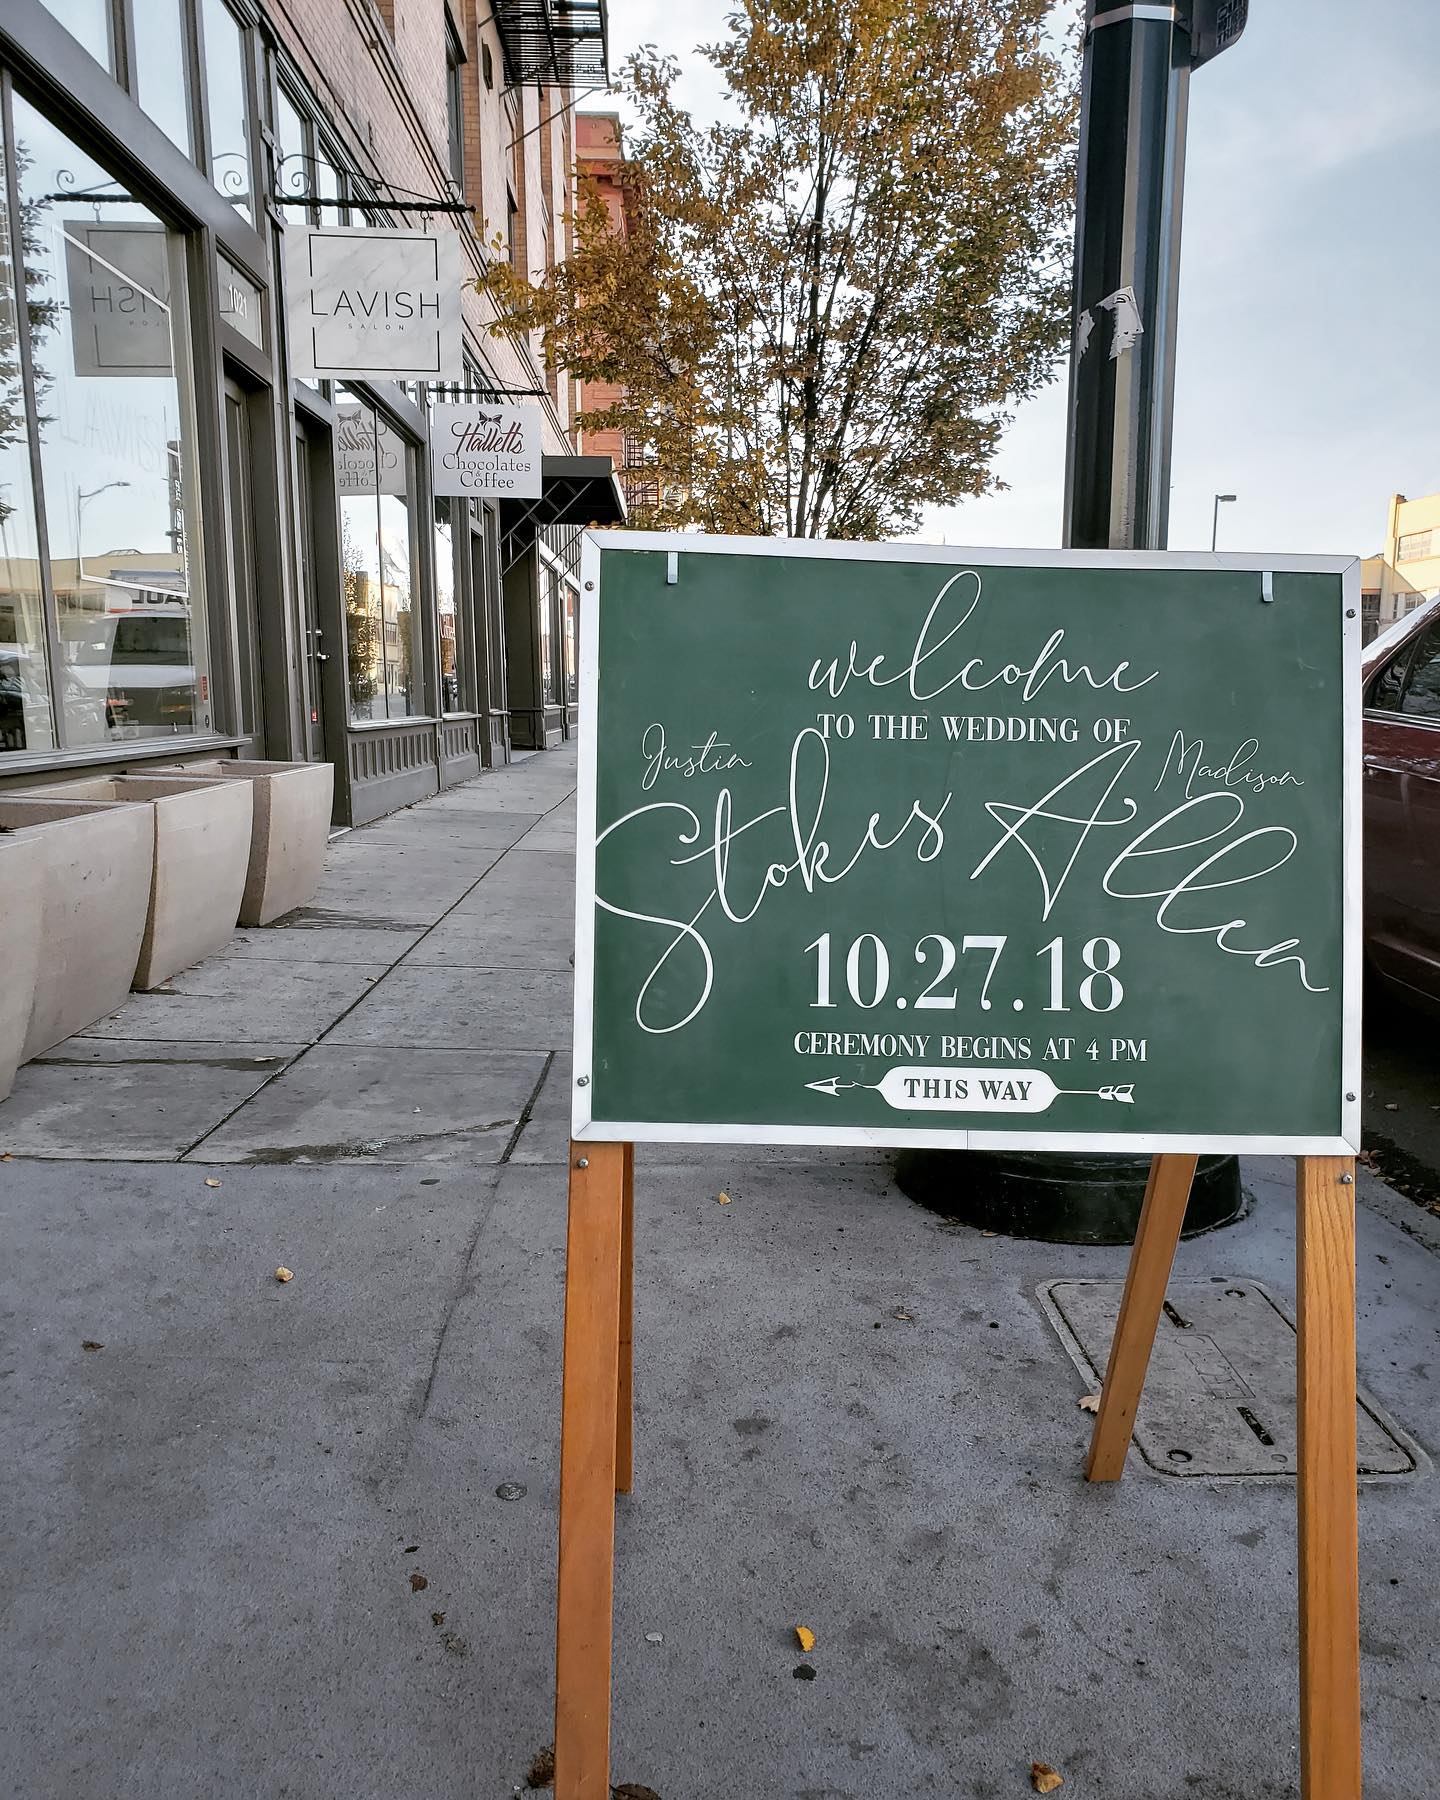 LAVISH
SALON
1021
Halletts
Chocolates
&
Coffee
welcome
TO THE WEDDING OF
Justin Madison
Stokes Allen
10.27.18
CEREMONY BEGINS AT 4 PM
THIS WAY